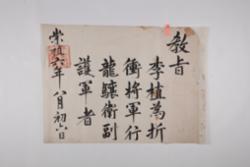 敎旨
李植為折
衝將軍行
龍驤衛副
護軍者
崇禎六年八月初六日